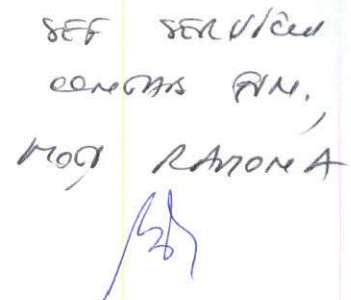 SEF SERVICIU
CONTAB FIN.,
MOCI RAMONA